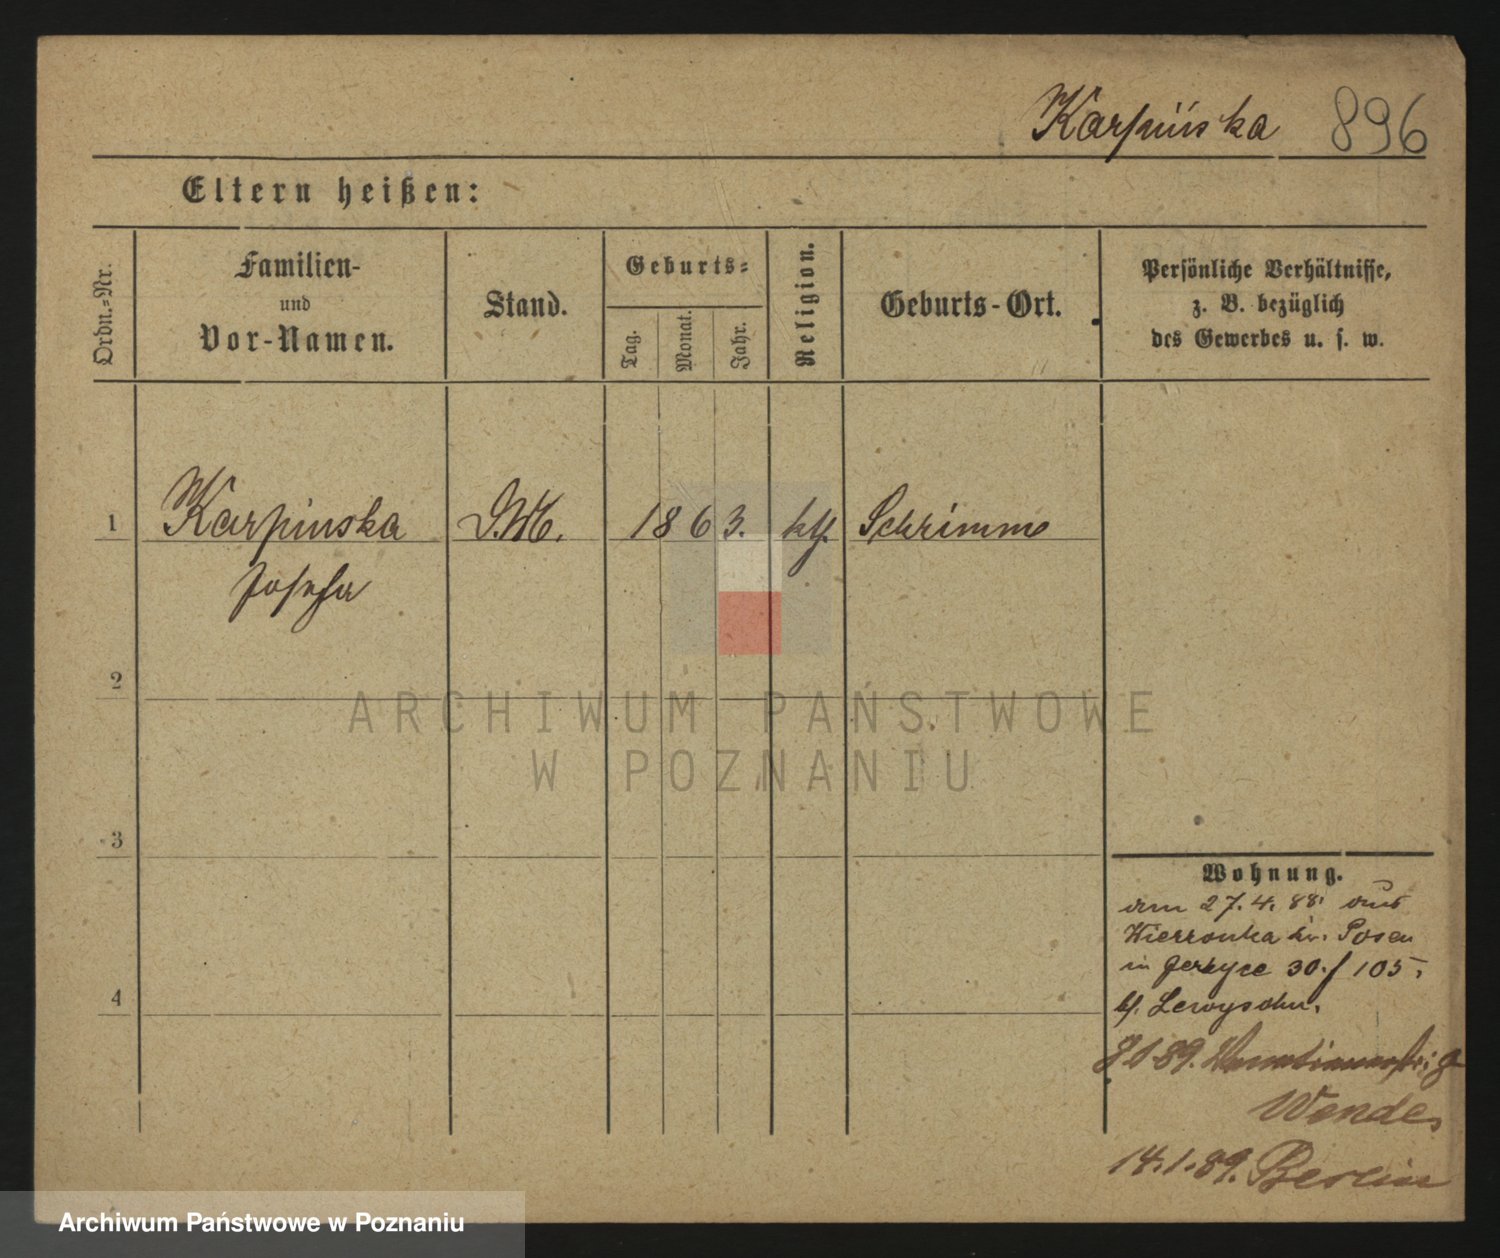 Karpińska 896
Eltern heißen:
Ordn.=Nr.
Familien-
und
Vor-Namen.
Stand.
Geburts=
Tag.
Monat.
Jahr.
Religion.
Geburts-Ort.
Persönliche Verhältnisse,
z. B. bezüglich
des Gewerbes u. s. w.
1 Karpinska 1863. kth. Schrimm
Josefa
2
ARCHIWUM PAŃSTWOWE
W POZNANIU
3
4
Wohnung.
am 27.4.88. aus
Wierzonka kr. Posen
in Jerzyce 30./105.
b/. Lewysohn.
8.1.89.
Wende
14.1.89. Berlin
Archiwum Państwowe w Poznaniu